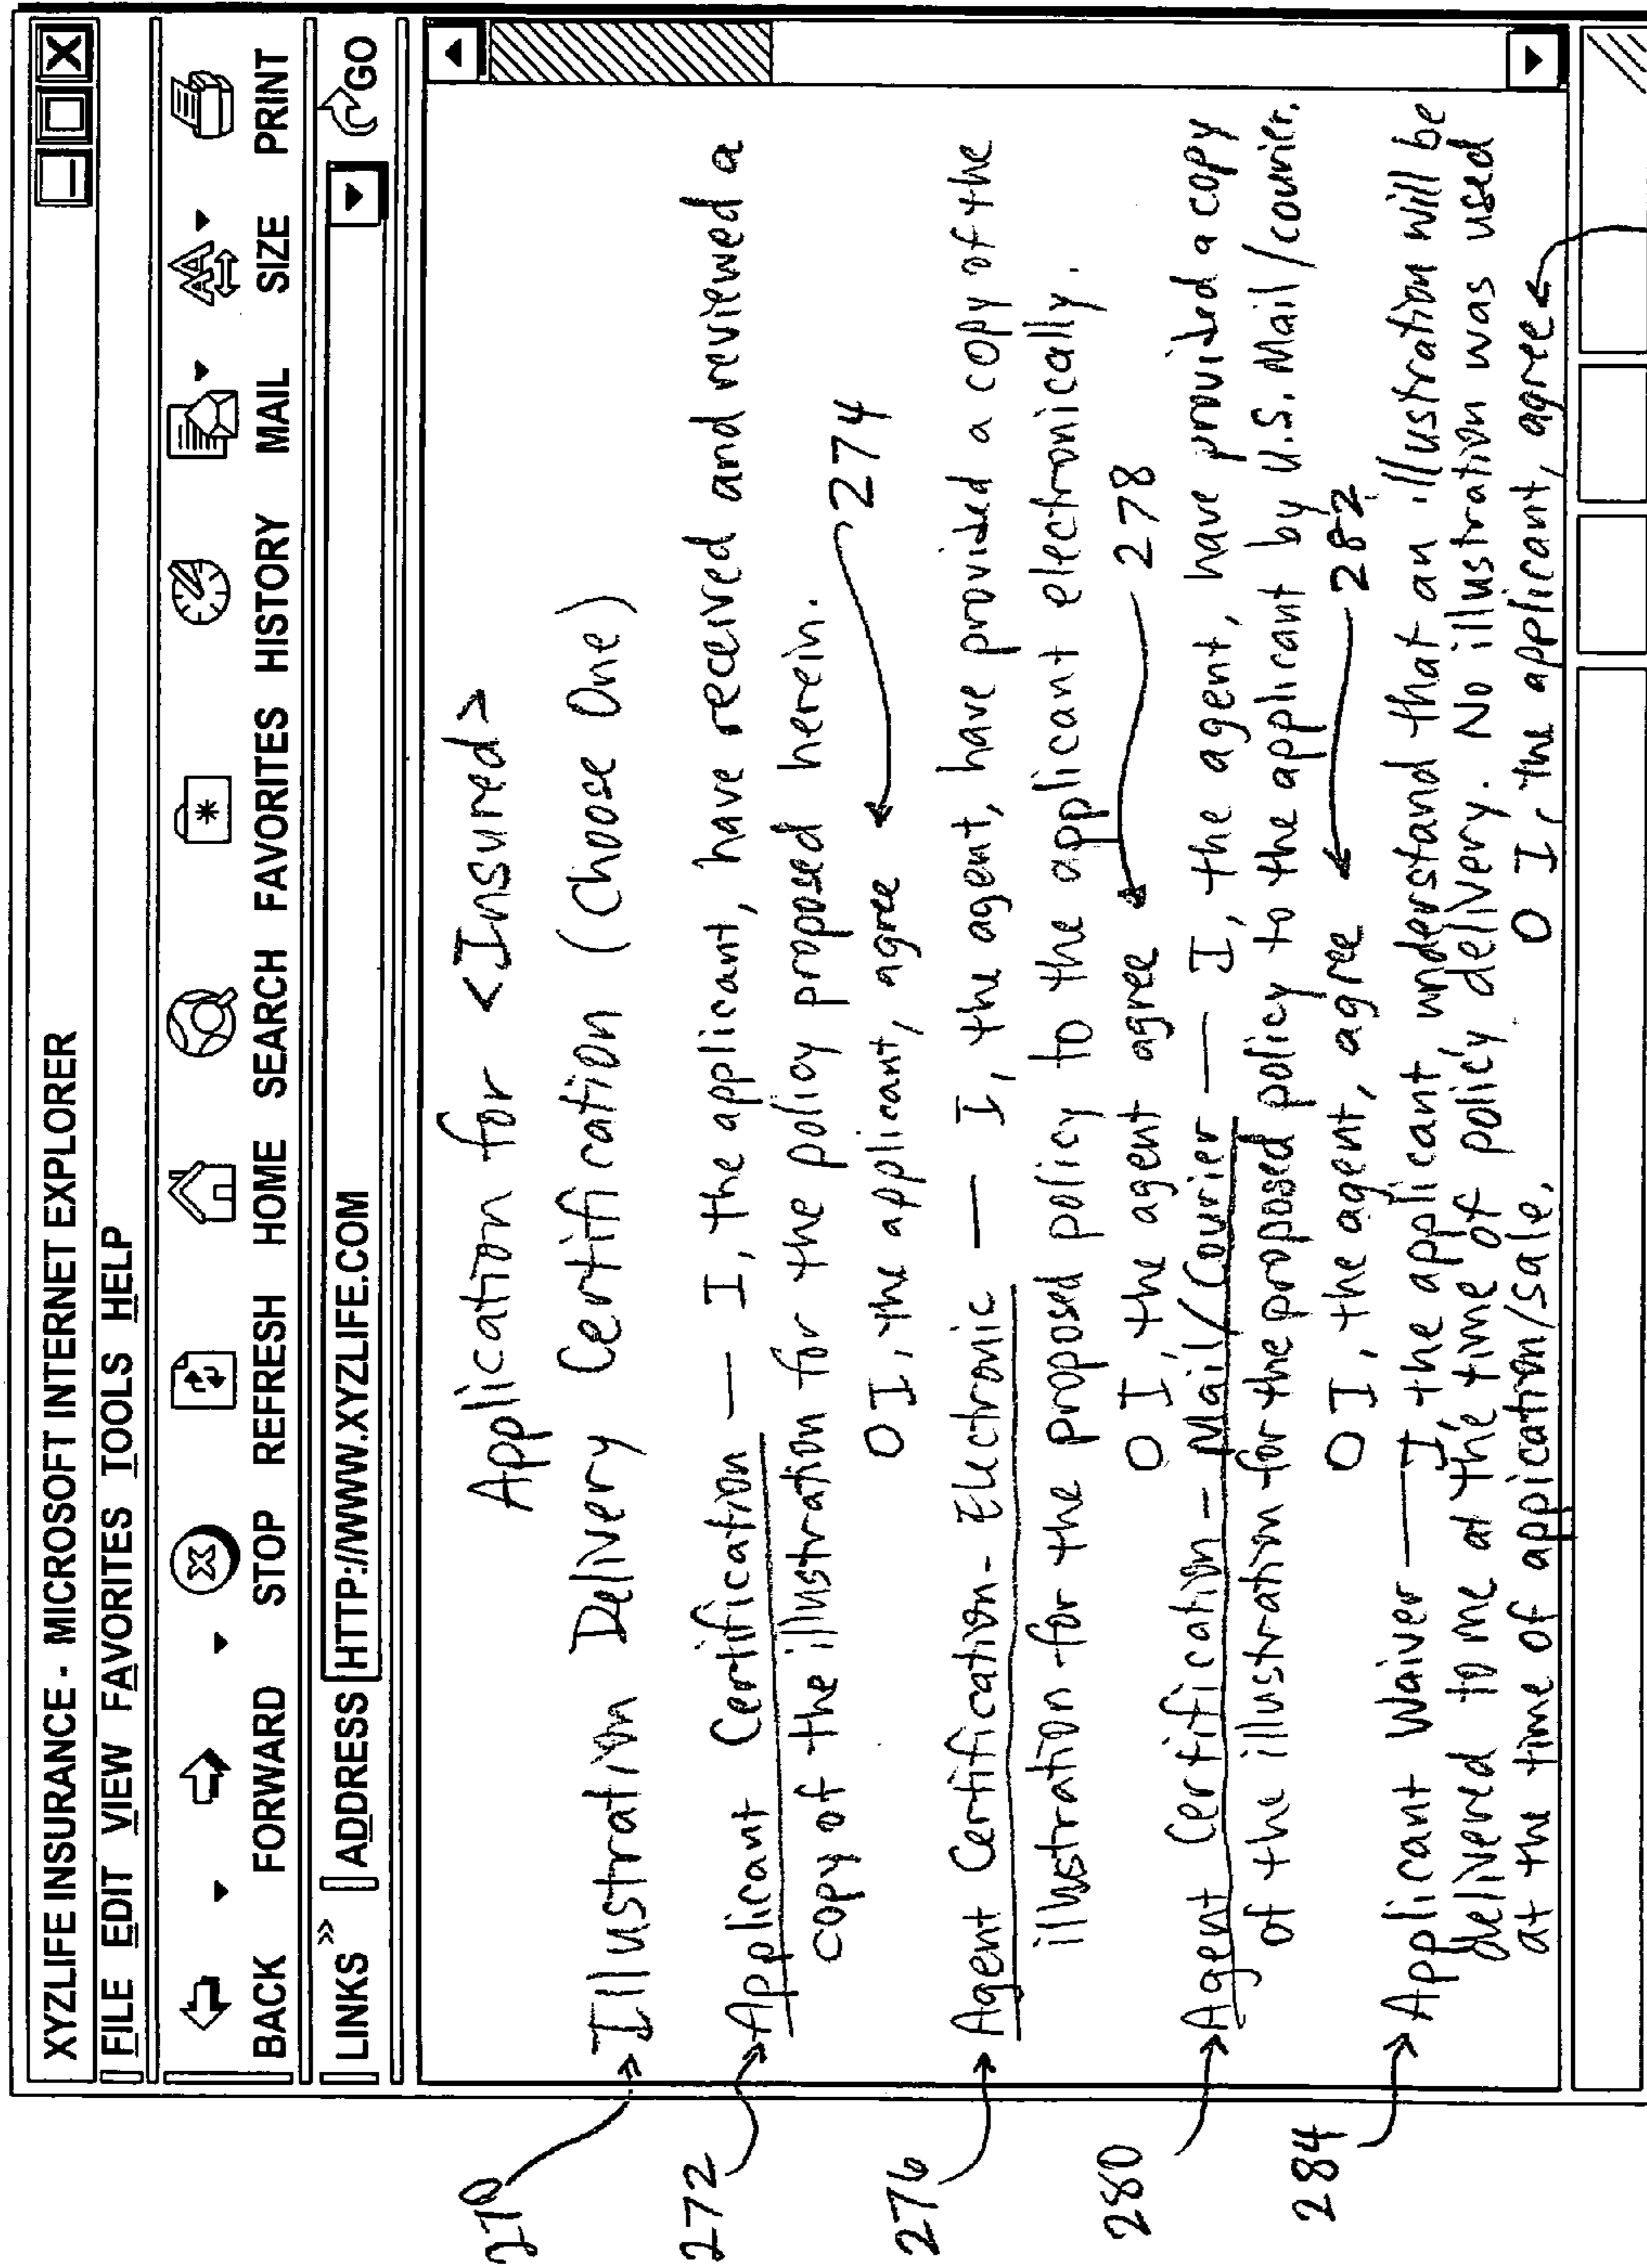 XYZLIFE INSURANCE - MICROSOFT INTERNET EXPLORER
FILE EDIT VIEW FAVORITES TOOLS HELP
BACK FORWARD STOP REFRESH HOME SEARCH FAVORITES HISTORY MAIL SIZE PRINT
LINKS » ADDRESS HTTP://WWW.XYZLIFE.COM GO
Application for <Insured>
270 Illustration Delivery Certification (Choose One)
272 Applicant Certification — I, the applicant, have received and reviewed a
copy of the illustration for the policy proposed herein.
O I, the applicant, agree 274
276 Agent Certification - Electronic — I, the agent, have provided a copy of the
illustration for the proposed policy to the applicant electronically.
O I, the agent agree 278
280 Agent Certification - Mail/Courier — I, the agent, have provided a copy
of the illustration for the proposed policy to the applicant by U.S. Mail/courier.
O I, the agent, agree 282
284 Applicant Waiver — I the applicant understand that an illustration will be
delivered to me at the time of policy delivery. No illustration was used
at the time of appication/sale. O I, the applicant, agree